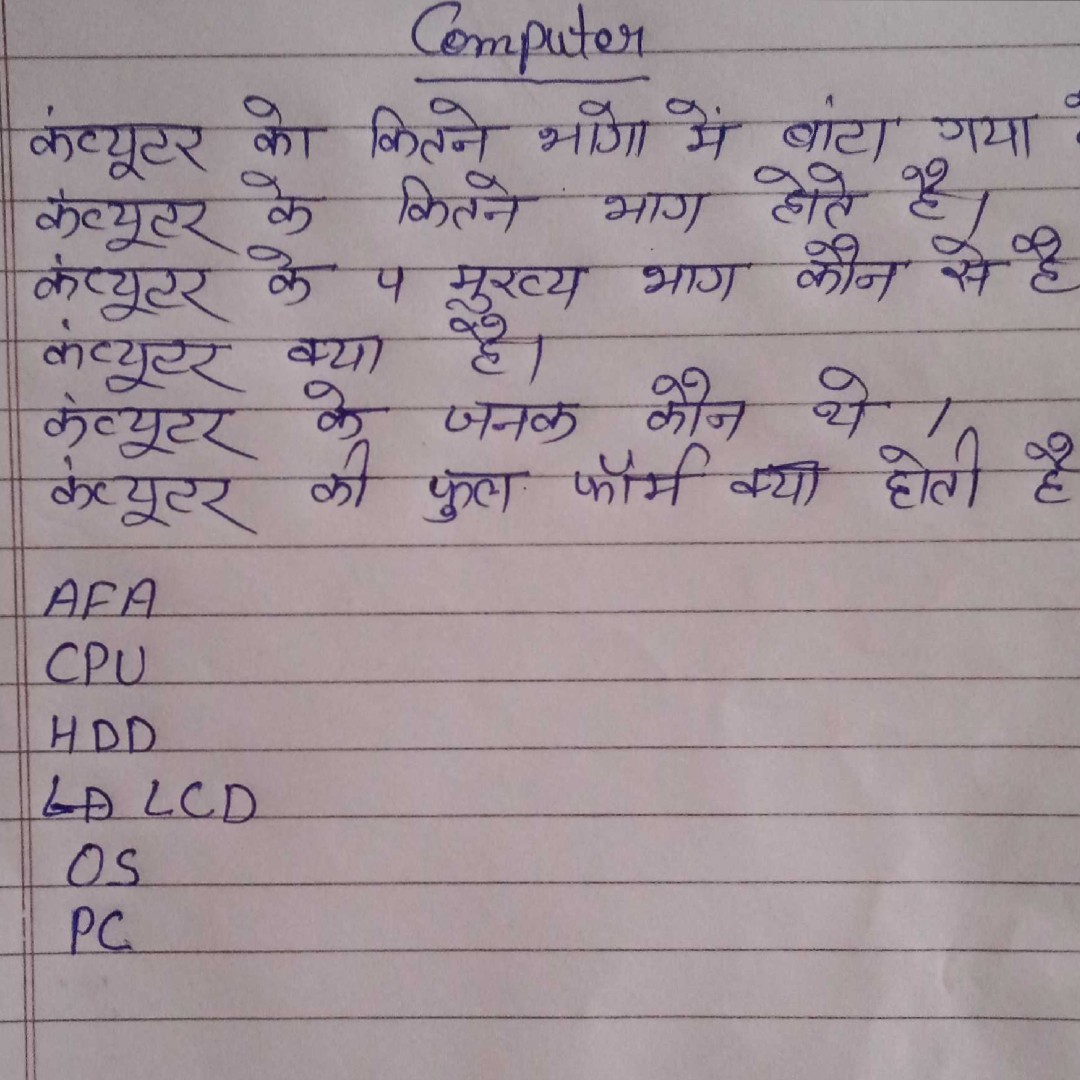 Computer
कंप्यूटर को कितने भागो में बांटा गया है
कंप्यूटर के कितने भाग होते है।
कंप्यूटर के 4 मुख्य भाग कौन से है
कंप्यूटर क्या है।
कंप्यूटर के जनक कौन थे ।
कंप्यूटर की फुल फॉर्म क्या होती है
AFA
CPU
HDD
LCD
OS
PC